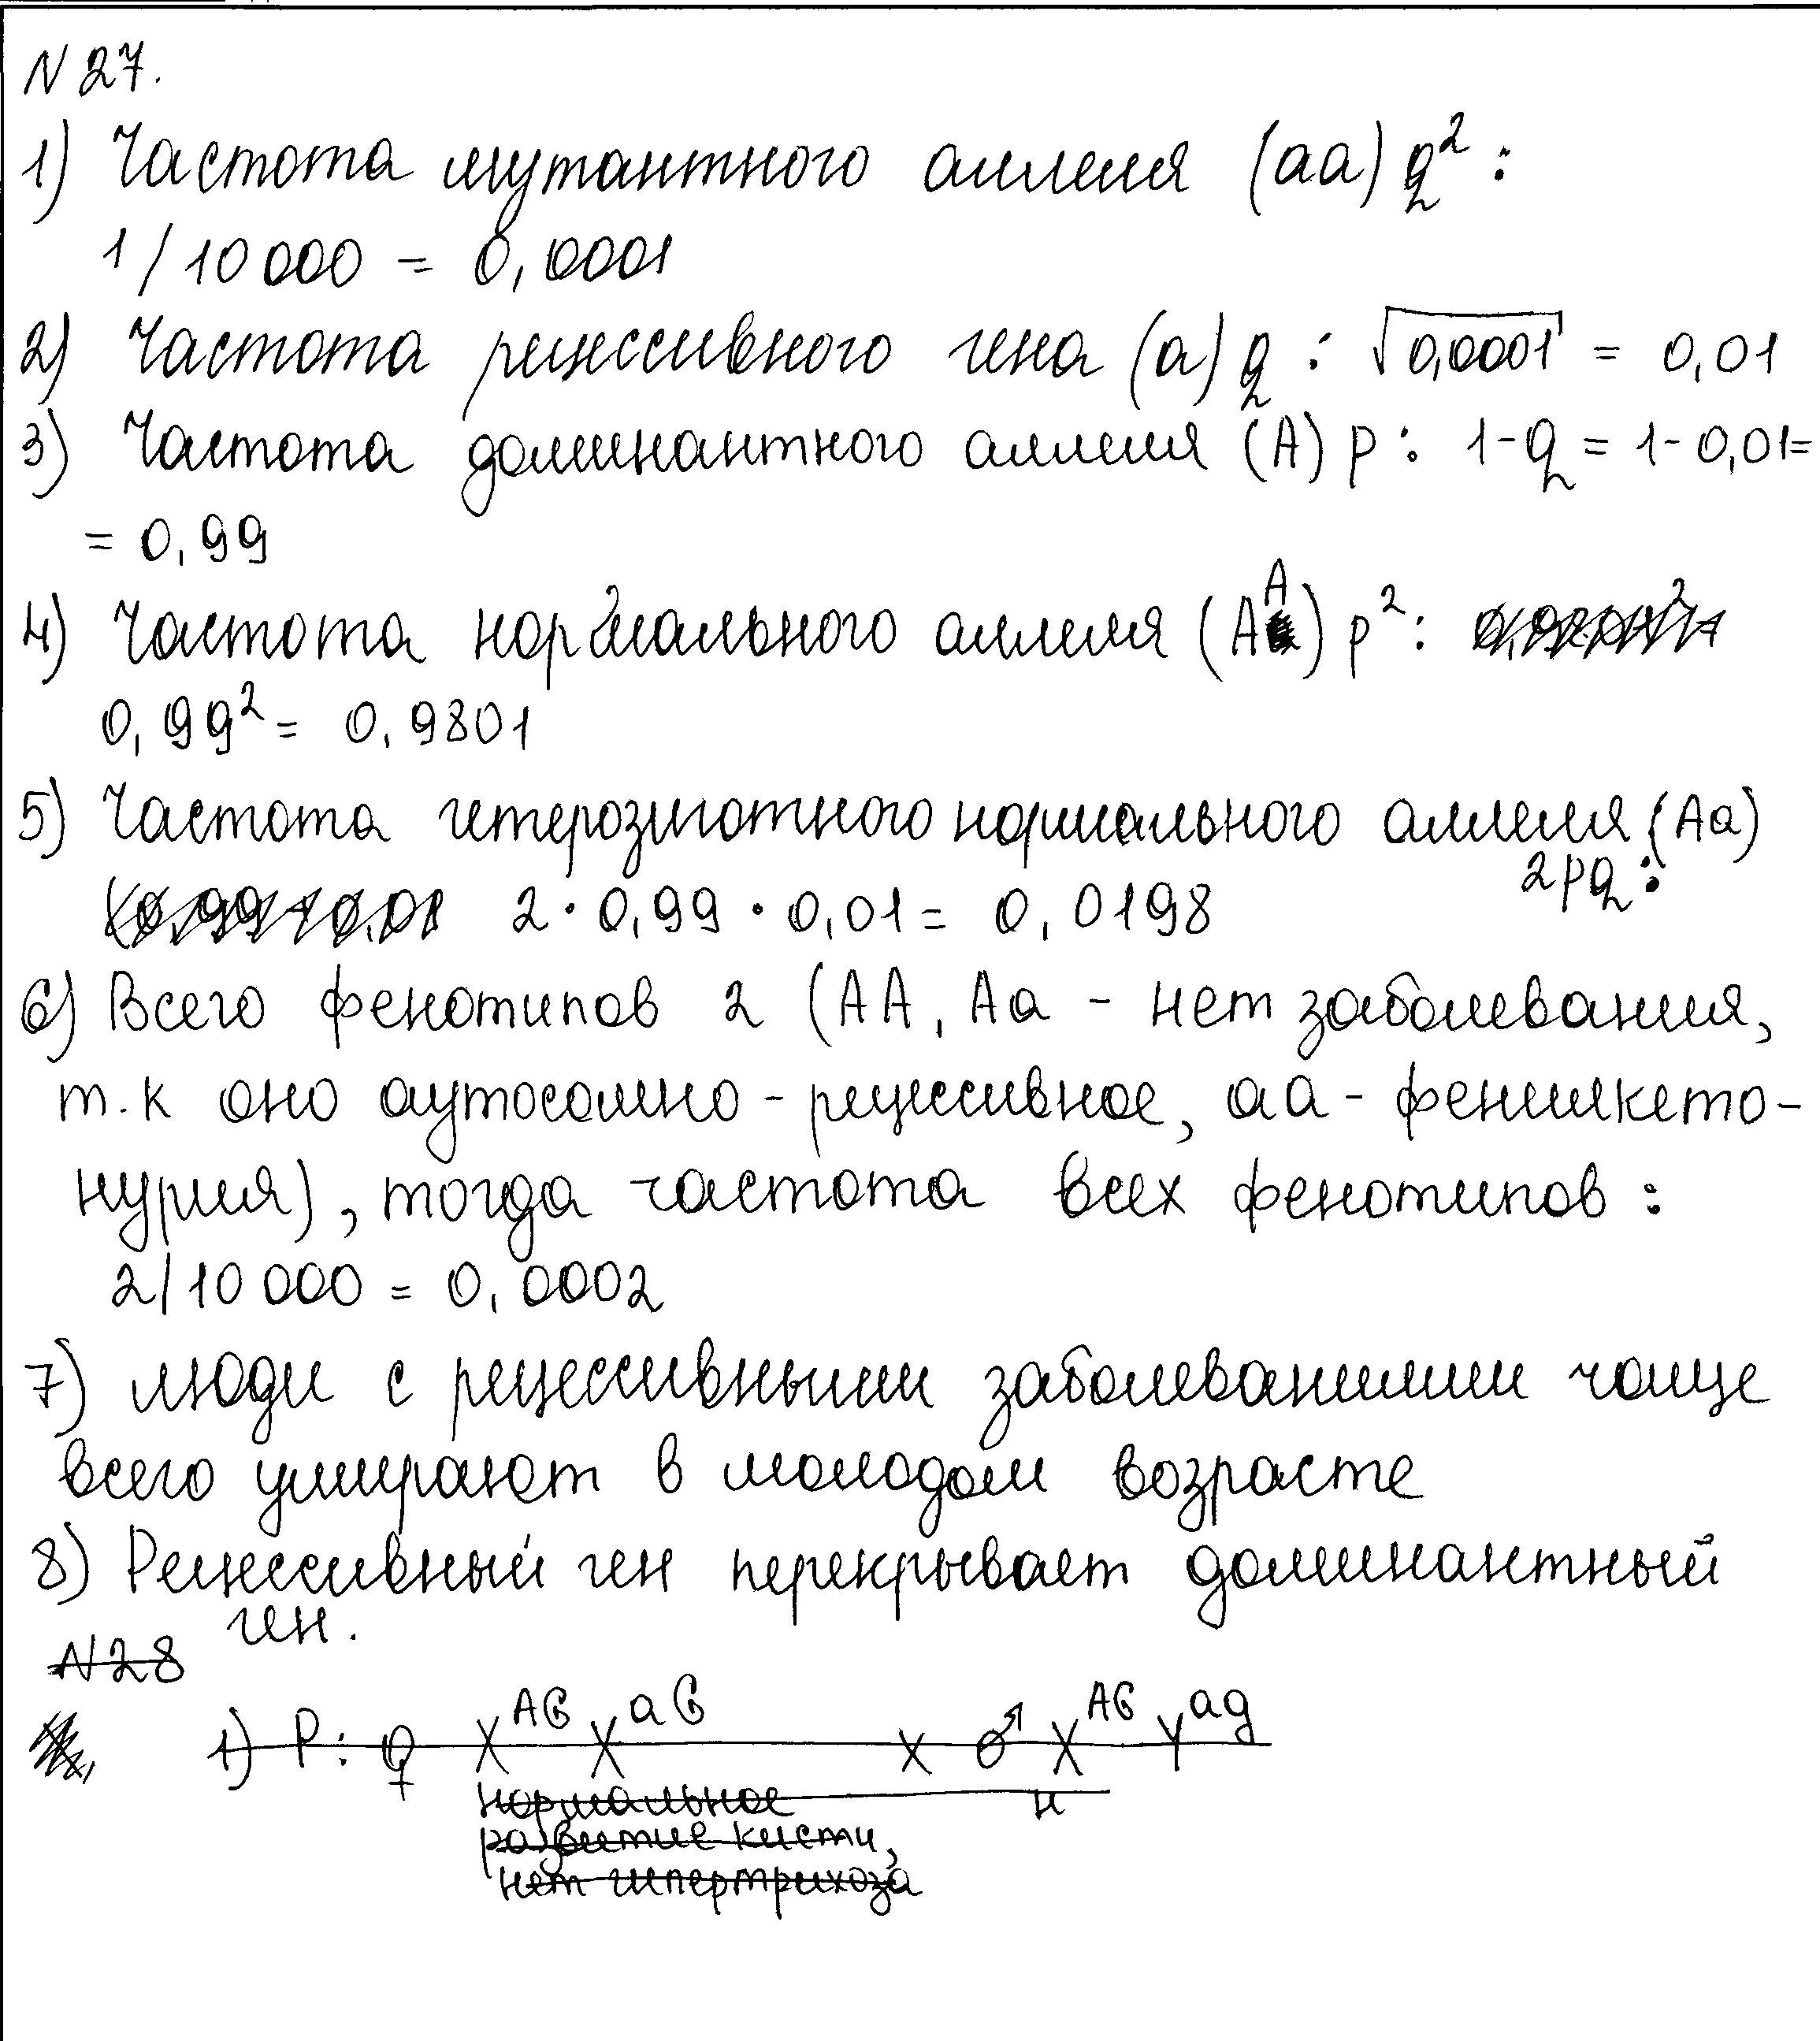 N 27.
1) Частота мутантного аллеля (aa) q² :
1/10 000 = 0,0001
2) Частота рецессивного гена (a) q : √0,0001 = 0,01
3) Частота доминантного аллеля (A) p : 1-q = 1-0,01=
= 0,99
4) Частота нормального аллеля (AA) p² :
0,99² = 0,9801
5) Частота гетерозиготного нормального аллеля (Aa)
2pq :
2 · 0,99 · 0,01 = 0,0198
6) Всего фенотипов 2 (AA, Aa - нет заболевания,
т.к оно аутосомно - рецессивное, aa - фенилкето-
нурия), тогда частота всех фенотипов :
2/10 000 = 0,0002
7) Люди с рецессивными заболеваниями чаще
всего умирают в молодом возрасте
8) Рецессивный ген перекрывает доминантный
ген.
N28
1) P: ♀ X^AG X^aG x ♂ X^AG Y^ag
нормальное н
развитие кисти,
нет гипертрихоза